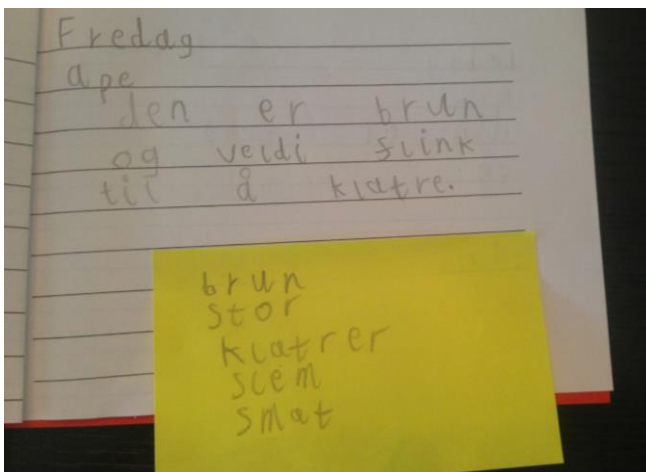 Fredag
ape
den er brun
og veldi flink
til å klatre.
brun
stor
klatrer
slem
smat